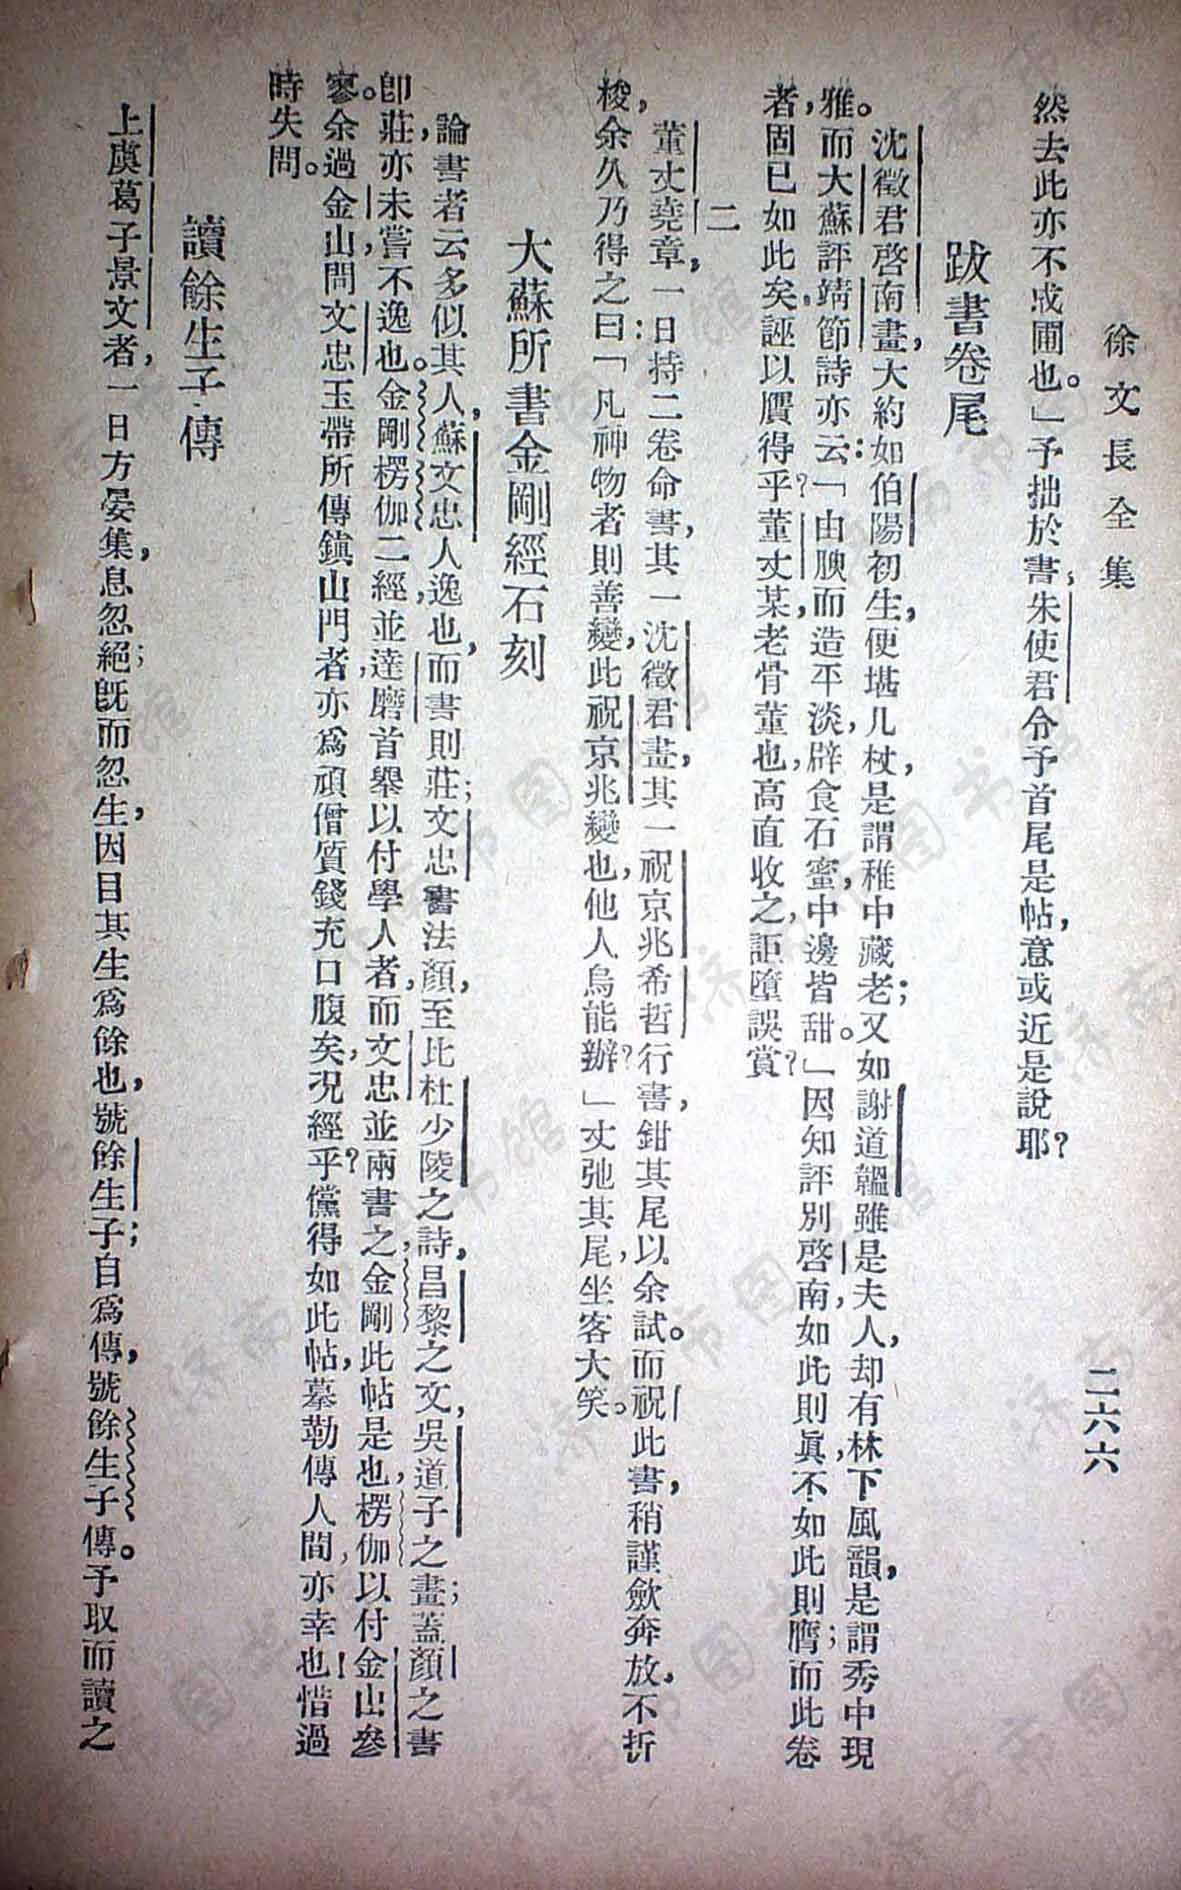 徐文長全集
二六六
然去此亦不或圃也。」予拙於書，朱使君令予首尾是帖，意或近是說耶？
跋書卷尾
沈徵君啓南畫，大約如伯陽初生，便堪几杖，是謂稚中藏老；又如謝道韞雖是夫人，却有林下風韻，是謂秀中現
雅。而大蘇評靖節詩亦云：「由腴而造平淡，辟食石蜜，中邊皆甜。」因知評別啓南，如此則眞，不如此則贋；而此卷
者，固已如此矣，誣以贋得乎？董丈某，老骨董也，高直收之，詎墮誤賞？
二
董丈堯章，一日持二卷命書，其一沈徵君畫，其一祝京兆希哲行書，鉗其尾以余試。而祝此書，稍謹斂奔放，不折
梭，余久乃得之曰：「凡神物者則善變，此祝京兆變也，他人烏能辦？」丈弛其尾，坐客大笑。
大蘇所書金剛經石刻
論書者云，多似其人。蘇文忠人逸也，而書則莊；文忠書法顏，至比杜少陵之詩，昌黎之文，吳道子之畫；蓋顏之書，
卽莊亦未嘗不逸也。金剛楞伽二經，並達磨首舉以付學人者，而文忠並兩書之，金剛此帖是也，楞伽以付金山參
寥。余過金山，問文忠玉帶所傳鎭山門者，亦爲頑僧質錢充口腹矣，况經乎？儻得如此帖，摹勒傳人間，亦幸也！惜過
時失問。
讀餘生子傳
上虞葛子景文者，一日方宴集，息忽絕；旣而忽生，因目其生爲餘也，號餘生子；自爲傳，號餘生子傳。予取而讀之